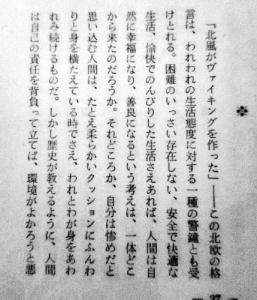 「北風がヴァイキングを作った」――この北欧の格
言は、われわれの生活態度に対する一種の警鐘とも受
けとれる。困難のいっさい存在しない、安全で快適な
生活、愉快でのんびりした生活さえあれば、人間は自
然に幸福になり、善良になるという考えは、一体どこ
から来たのだろうか。それどころか、自分は惨めだと
思い込む人間は、たとえ柔らかいクッションにふんわ
りと身を横たえている時でさえ、われとわが身をあわ
れみ続けるものだ。しかし歴史が教えるように、人間
は自己の責任を背負って立てば、環境がよかろうと悪
27